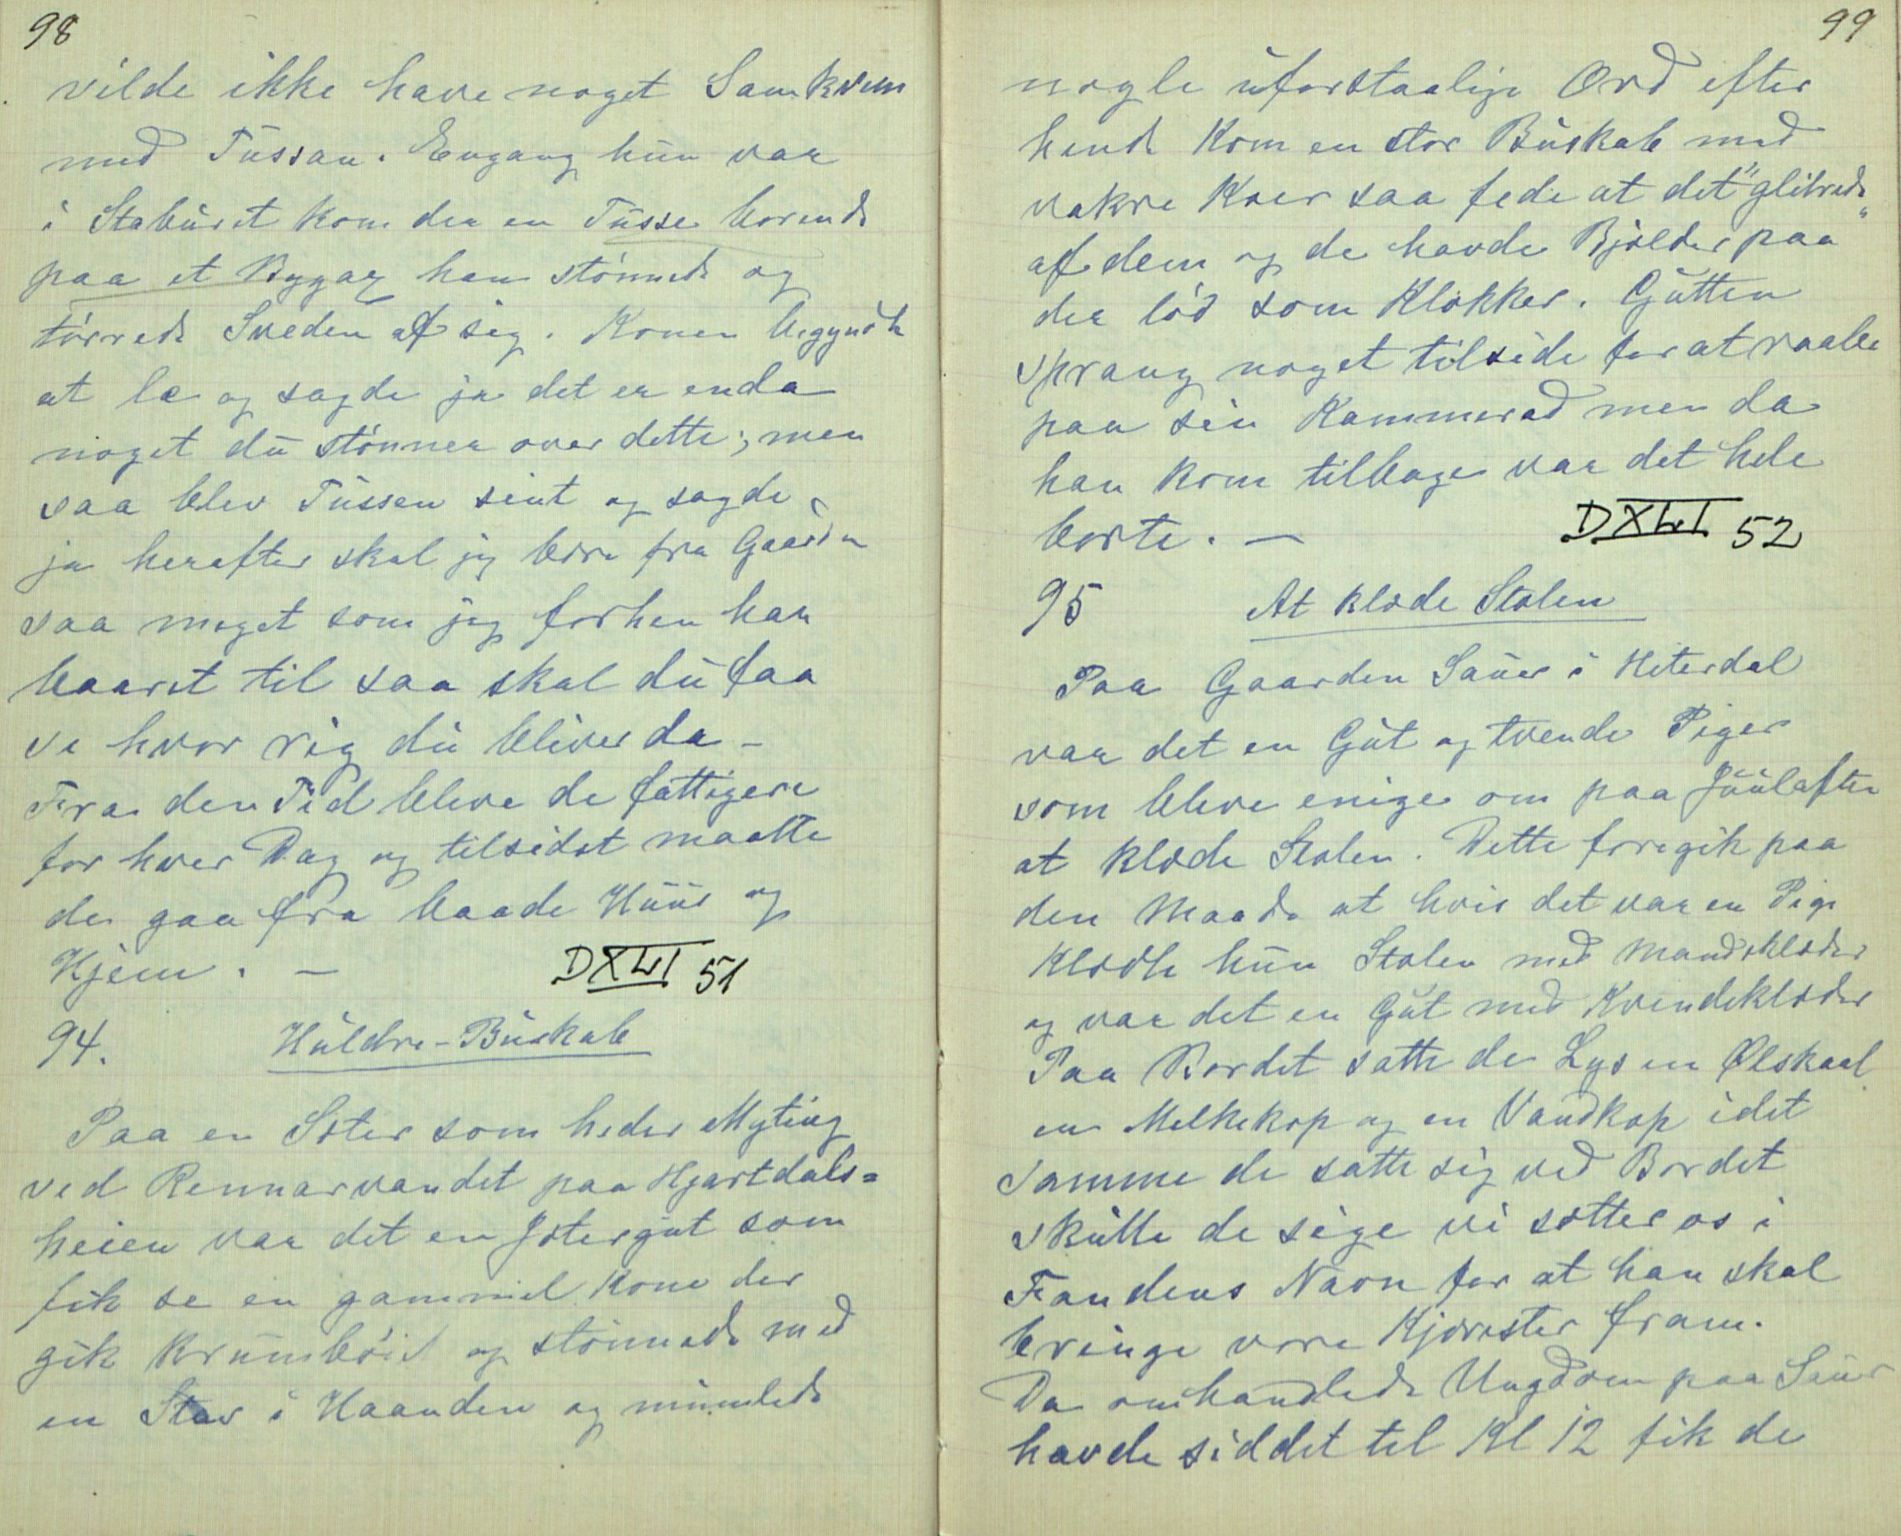 98
vilde ikke have noget Samkvem
med Tussan. Engang hun var
i Staburet kom der en Tusse berende
paa et Bygax han stønnede og
tørrede Sveden af sig. Konen begyndte
at le og sagde ja det er enda
noget du stønner over dette; men
saa blev Tussen sint og sagde
ja herefter skal jeg bere fra Gaarden
saa meget som jeg forhen har
baaret til saa skal du faa
se hvor rig du bliver da -
Fra den Tid bleve de fattigere
for hver Dag og tilsidst maatte
de gaa fra baade Huus og
Hjem. —
DXLI 51
94. Huldre-Buskab
Paa en Sæter som heder Myting
ved Rennarvandet paa Hjartdals=
heien var det en Jætergut som
fik se en gammel Kone der
gik krumbøid og stønnede med
en Stav i Haanden og mumlede
99
nogle uforstaalige Ord efter
hende kom en stor Buskab med
vakre Køer saa fede at det "glitrede"
af dem og de havde Bjælder paa
der lød som Klokker. Gutten
sprang noget tilside for at raabe
paa sin Kammerad men da
han kom tilbage var det hele
borte. —
DXLI 52
95 At klæde Stolen
Paa Gaarden Sauer i Hiterdal
var det en Gut og tvende Piger
som bleve enige om paa Juulaften
at klæde Stolen. Dette foregik paa
den Maade at hvis det var en Pige
klædte hun Stolen med Mandsklæder
og var det en Gut med Kvindeklæder
Paa Bordet satte de Lys en Ølskaal
en Melkekop og en Vandkop idet
samme de satte sig ved Bordet
skulle de sige vi sætter os i
Fandens Navn for at han skal
bringe vore Kjærester fram.
Da omhandlede Ungdom paa Sauer
havde siddet til Kl 12 fik de